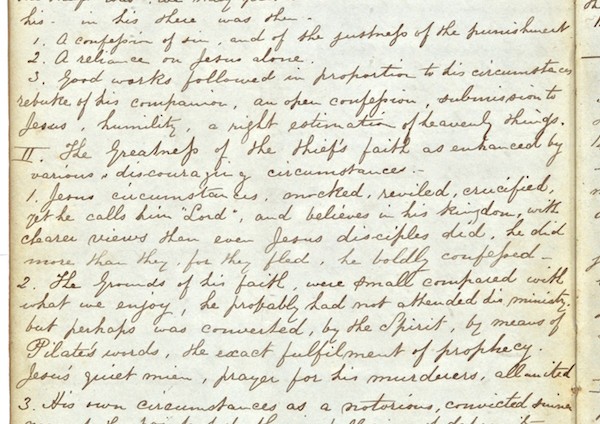 his - in his there was then -
1. A confession of sin, and of the justness of the punishment
2. A reliance on Jesus alone.
3. Good works followed in proportion to his circumstances
rebuke of his companion, an open confession, submission to
Jesus, humility, a right estimation of heavenly things.
II. The Greatness of the thief's faith as enhanced by
various discouraging circumstances. -
1. Jesus circumstances, mocked, reviled, crucified,
yet he calls him "Lord", and believes in his kingdom, with
clearer views than even Jesus disciples did, he did
more than they, for they fled, he boldly confessed -
2. The Grounds of his faith, were small compared with
what we enjoy, he probably had not attended his ministry,
but perhaps was converted, by the Spirit, by means of
Pilate's words, the exact fulfilment of prophecy.
Jesus' quiet mien, prayer for his murderers, all united
3. His own circumstances as a notorious, convicted sinner